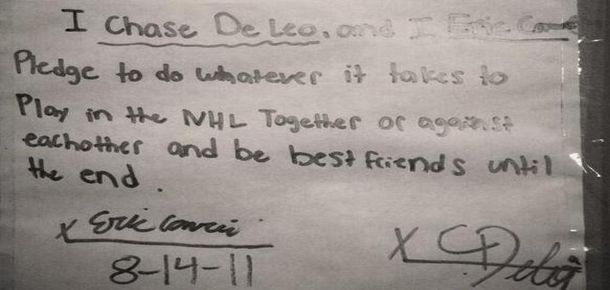 I Chase De Leo, and I Eric
Pledge to do whatever it takes to
Play in the NHL Together or against
eachother and be best friends until
the end.
x Eric
8-14-11
X CDeleo